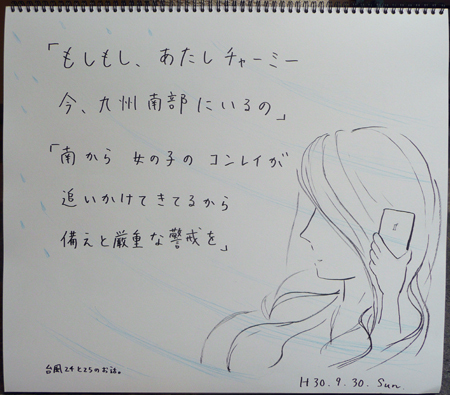 「もしもし、あたしチャーミー
今、九州南部にいるの」
「南から 女の子の コンレイが
追いかけてきてるから
備えと厳重な警戒を」
台風24と25のお話。
H30.9.30. Sun